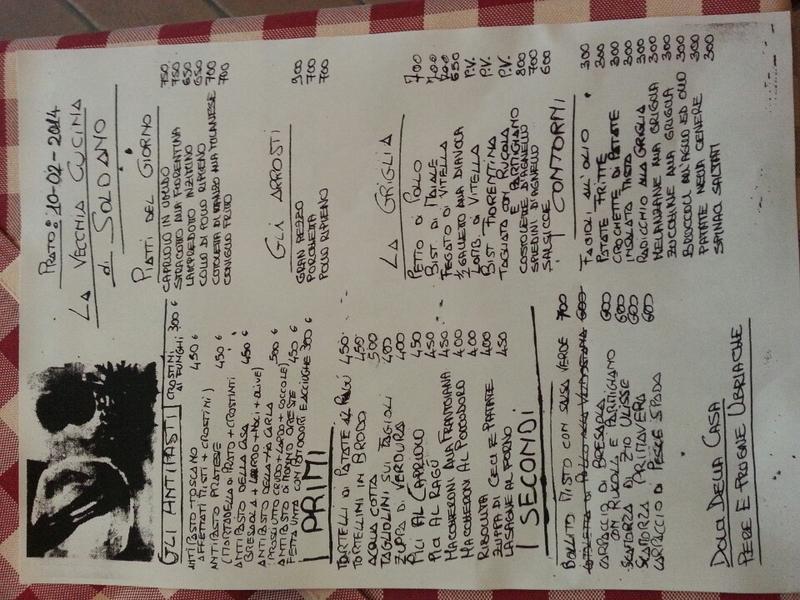 PRATO: 10-02-2014
LA VECCHIA CUCINA
di SOLDANO
GLI ANTIPASTI
CROSTINI
AI FUNGHI 300 €
ANTIPASTO TOSCANO
AFFETTATI MISTI + CROSTINI) 450 €
ANTIPASTO PRATESE
(MORTADELLA DI PRATO + CROSTINI) 450 €
ANTIPASTO DELLA CASA
(BRESAOLA + LARDO + NOCI + OLIVE) 450 €
ANTIPASTO DELLA
(PROSCIUTTO CRUDO + LARDO + COCCOLE) 500 €
ANTIPASTO DI 450 €
FETTA UNTA CON POMODORI E ACCIUGHE 300 €
PRIMI
TORTELLI DI PATATE AL RAGÙ 450
TORTELLINI IN BRODO 450
ACQUA COTTA 500
TAGLIOLINI SUI FAGIOLI 400
ZUPPA DI VERDURA 400
PICI AL CAPRIOLO 450
PICI AL RAGÙ 450
MACCHERONI ALLA FRANTOIANA 450
MACCHERONI AL POMODORO 400
RIBOLLITA 400
ZUPPA DI CECI E PATATE 400
LASAGNE AL FORNO 450
SECONDI
BOLLITO MISTO CON SALSA VERDE 700
600
CARPACCIO DI BRESAOLA
CON RUCOLA E PARMIGIANO 600
SCAMORZA DI ZIO ULISSE 600
SCAMORZA PRIMAVERA 600
CARPACCIO DI PESCE SPADA 600
DOLCI DELLA CASA
PERE E PRUGNE UBRIACHE
PIATTI DEL GIORNO
CAPRIOLO IN UMIDO 750
STRACOTTO ALLA FIORENTINA 750
LAMPREDOTTO INZIMINO 650
COLLO DI POLLO RIPIENO 650
COTOLETTA DI ALLA MILANESE 700
CONIGLIO FRITTO 700
GLI ARROSTI
GRAN PEZZO 900
PORCHETTA 700
POLLO RIPIENO 700
LA GRIGLIA
PETTO DI POLLO 700
BIST. DI MAIALE 700
FEGATO DI VITELLA 700
½ GALLETTO ALLA DIAVOLA 650
LOMB. DI VITELLA P.V.
BIST. FIORENTINA P.V.
TAGLIATA CON RUCOLA
E PARMIGIANO P.V.
COSTOLETTE D'AGNELLO 800
SPIEDINI D'AGNELLO 700
SALSICCE 600
CONTORNI
FAGIOLI ALL'OLIO 300
PATATE FRITTE 300
CROCCHETTE DI PATATE 300
INSALATA MISTA 300
RADICCHIO ALLA GRIGLIA 300
MELANZANE ALLA GRIGLIA 300
ZUCCHINE ALLA GRIGLIA 300
BROCCOLI ALL'AGLIO ED OLIO 300
PATATE NELLA CENERE 300
SPINACI SALTATI 300